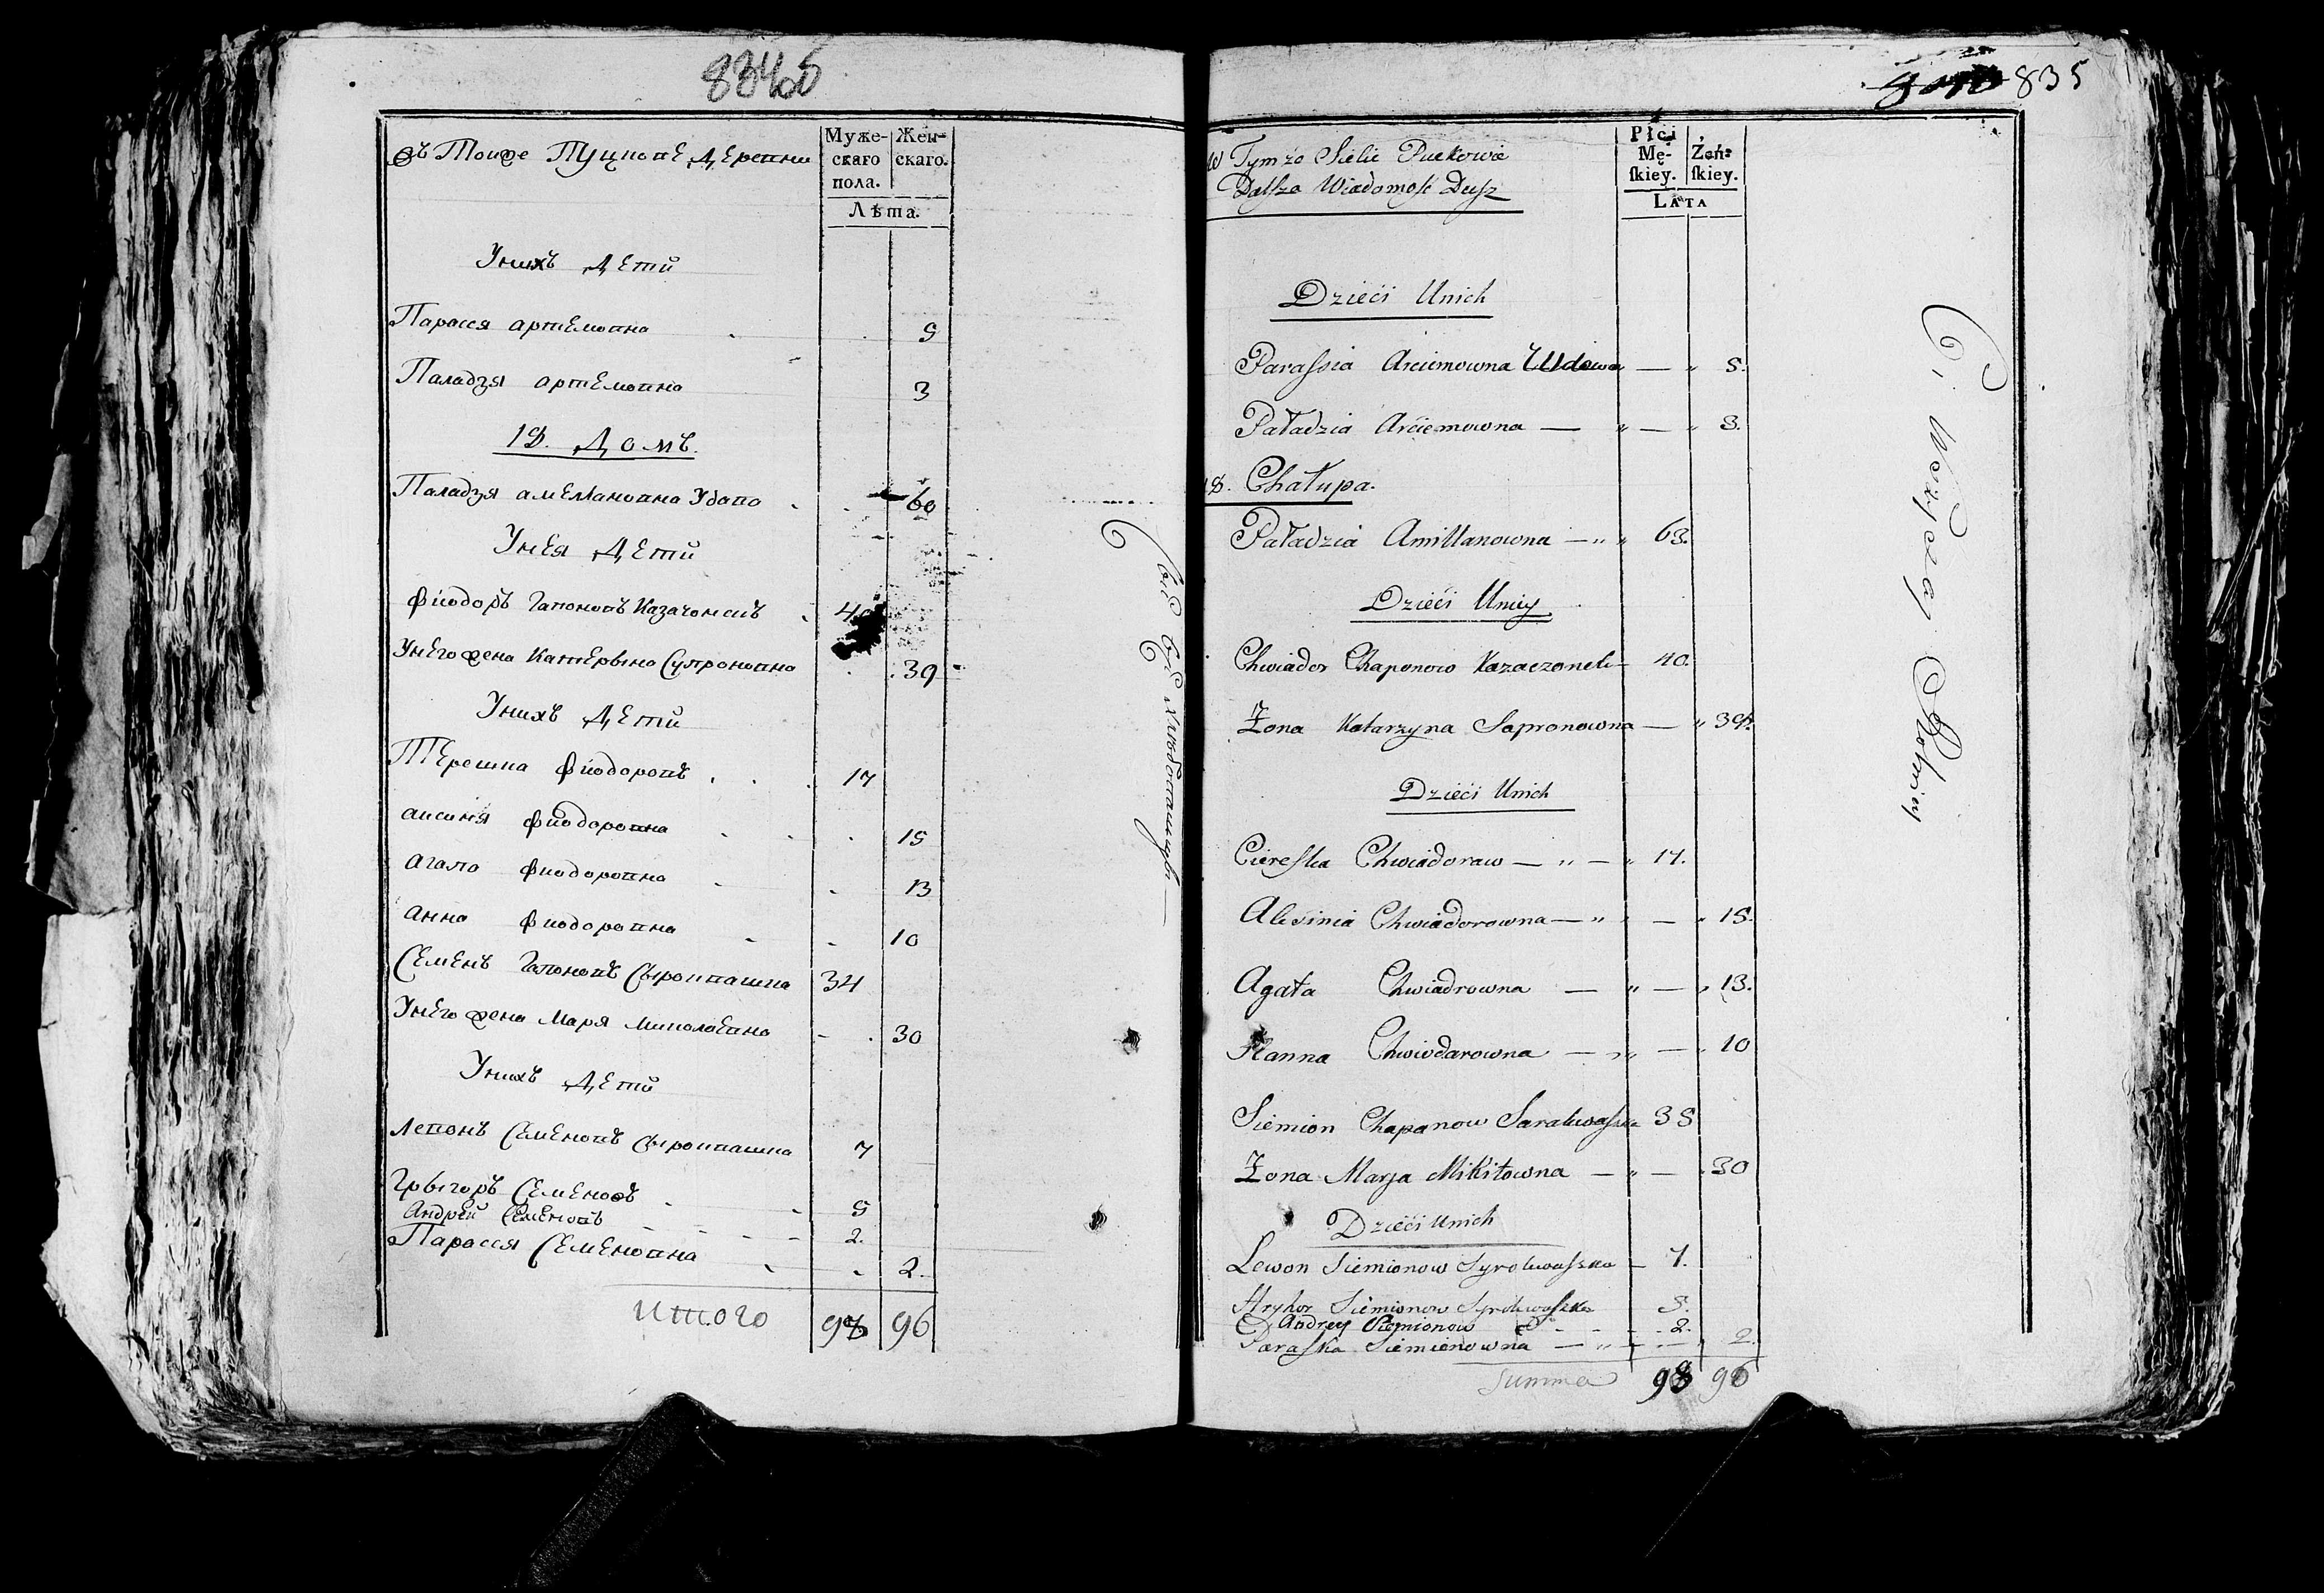 8346
въ Тойже Пуцковѣ Деревни
Муже-
скаго
пола.
Жен-
скаго.
Лѣта.
Унихъ Дети
Парасся артемовна 5
Паладзя артемовна 3
18. Домъ.
Паладзя амеляновна Удова 60
Унея Дети
Фіодоръ Гапоновъ Казачонакъ 40
Унего жена Катерына Супроновна 39
Унихъ Дети
Терешка Фіодоровъ 17
аксиня Фиодоровна 15
агапа Фиодоровна 13
анна Фиодоровна 10
Семенъ Гапоновъ Сыроквашка 34
Унего жена Маря Миколаевна 30
Унихъ Дети
Левонъ Семеновъ Сыроквашка 7
Грыгоръ Семеновъ 5
Андрей Семеновъ 2.
Парасся Семеновна 2.
итого 98 96
835
w Tymżo Sielie Puckowie
Dalsza Wiadomość Dusz
Płci
Mę-
skiey.
Żeń-
skiey.
Lata
Dzieći Unich
Parassia Arciemowna Udowa — „ 5.
Paładzia Arciemowna — „ — „ 3.
18. Chałupa.
Paładzia Amillanowna — „ „ 63.
Dzieći Uniey
Chwiador Chaponow Kazaczonek — 40.
Żona Katarzyna Sapronowna — „ 39.
Dzieći Unich
Ciereszka Chwiadoraw — „ — „ 17.
Alesinia Chwiadorowna — „ „ — „ 15.
Agata Chwiadrowna — „ — „ 13.
Hanna Chwiodarowna — „ „ — „ 10
Siemion Chapanow Sarakwaszka 35
Żona Marja Mikitowna — „ — „ 30
Dzieći Unich
Lewon Siemionow Syrokwaszka — 7.
Hryhor Siemionow Syrokwaszka 5.
Andrey Siemionow 2.
Paraska Siemionowna — „ — „ 2.
Summa 98 96